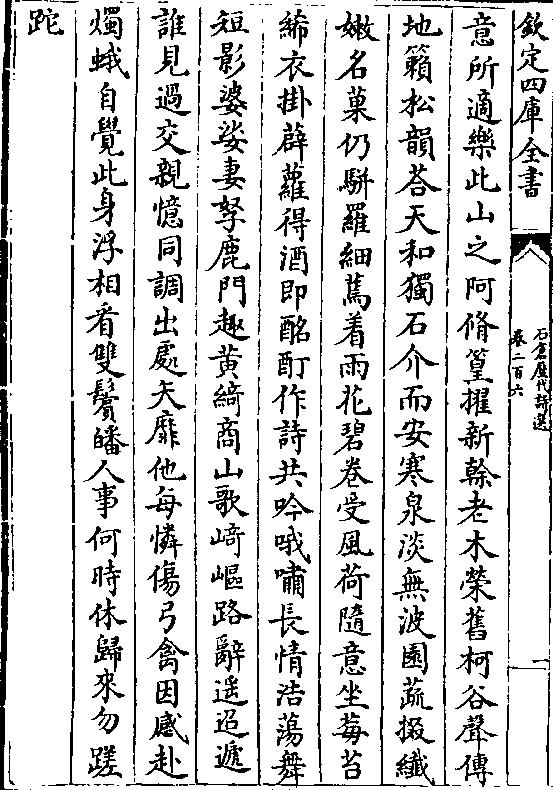 欽定四庫全書
石倉歷代詩選
卷二百六
一
意所適樂此山之阿脩篁擢新榦老木榮舊柯谷聲傳
地籟松韻荅天和獨石介而安寒泉淡無波園蔬掇纖
嫩名菓仍駢羅細蔦着雨花碧卷受風荷隨意坐莓苔
絺衣掛薜蘿得酒即酩酊作詩共吟哦嘯長情浩蕩舞
短影婆娑妻孥鹿門趣黄綺商山歌﨑嶇路辭遥迢遞
誰見過交親憶同調出處矢靡他每憐傷弓禽因感赴
燭蛾自覺此身浮相看雙鬢皤人事何時休歸來勿蹉
跎